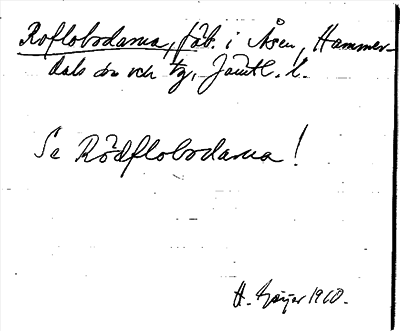 Roflobodarna, fäb. i Åsen, Hammer-
dals sn och tg, Jämtl. l.
Se Rödflobodarna!
H. Geijer 1960.